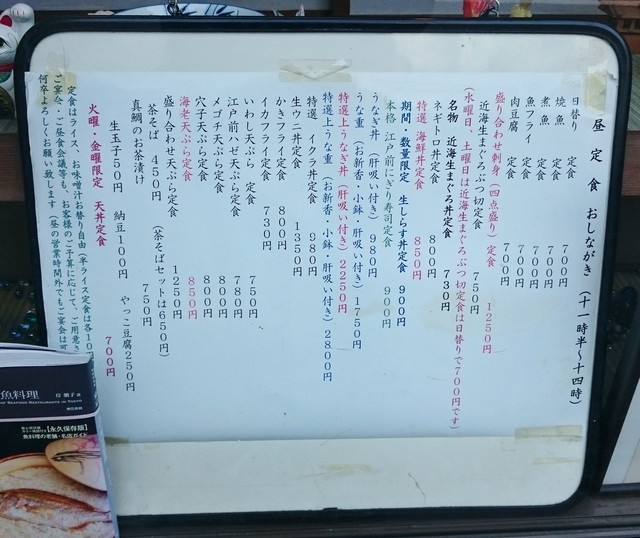 昼定食 おしながき (十一時半~十四時)
日替り 定食 700円
焼魚 定食 700円
煮魚 定食 700円
魚フライ 定食 700円
肉豆腐 定食 700円
盛り合わせ刺身 (四点盛り) 定食 1250円
近海生まぐろぶつ切定食 750円
(水曜日、土曜日は近海生まぐろぶつ切定食は日替りで700円です)
名物 近海生まぐろ丼定食 730円
ネギトロ丼定食 800円
特選 海鮮丼定食 850円
期間・数量限定 生しらす丼定食 900円
本格 江戸前にぎり寿司定食 900円
うなぎ丼 (肝吸い付き) 980円
うな重 (お新香・小鉢・肝吸い付き) 1750円
特選上うなぎ丼 (肝吸い付き) 2250円
特選上うな重 (お新香・小鉢・肝吸い付き) 2800円
特選 イクラ丼定食 980円
生ウニ丼定食 1350円
かきフライ定食 800円
イカフライ定食 730円
いわし天ぷら 定食 750円
江戸前ハゼ天ぷら定食 780円
メゴチ天ぷら定食 800円
穴子天ぷら定食 800円
海老天ぷら定食 850円
盛り合わせ天ぷら定食 1250円
茶そば 450円 (茶そばセットは650円)
真鯛のお茶漬け 750円
生玉子50円 納豆100円 やっこ豆腐250円
火曜・金曜限定 天丼定食 700円
定食はライス、お味噌汁お替り自由 (半ライス定食は各10
ご宴会・ご昼食会議等も、お客様のご予算に応じて、ご用意さ
何卒よろしくお願い致します (昼の営業時間外でもご宴会は可
魚料理
【永久保存版】
魚料理の老舗・名店ガイド